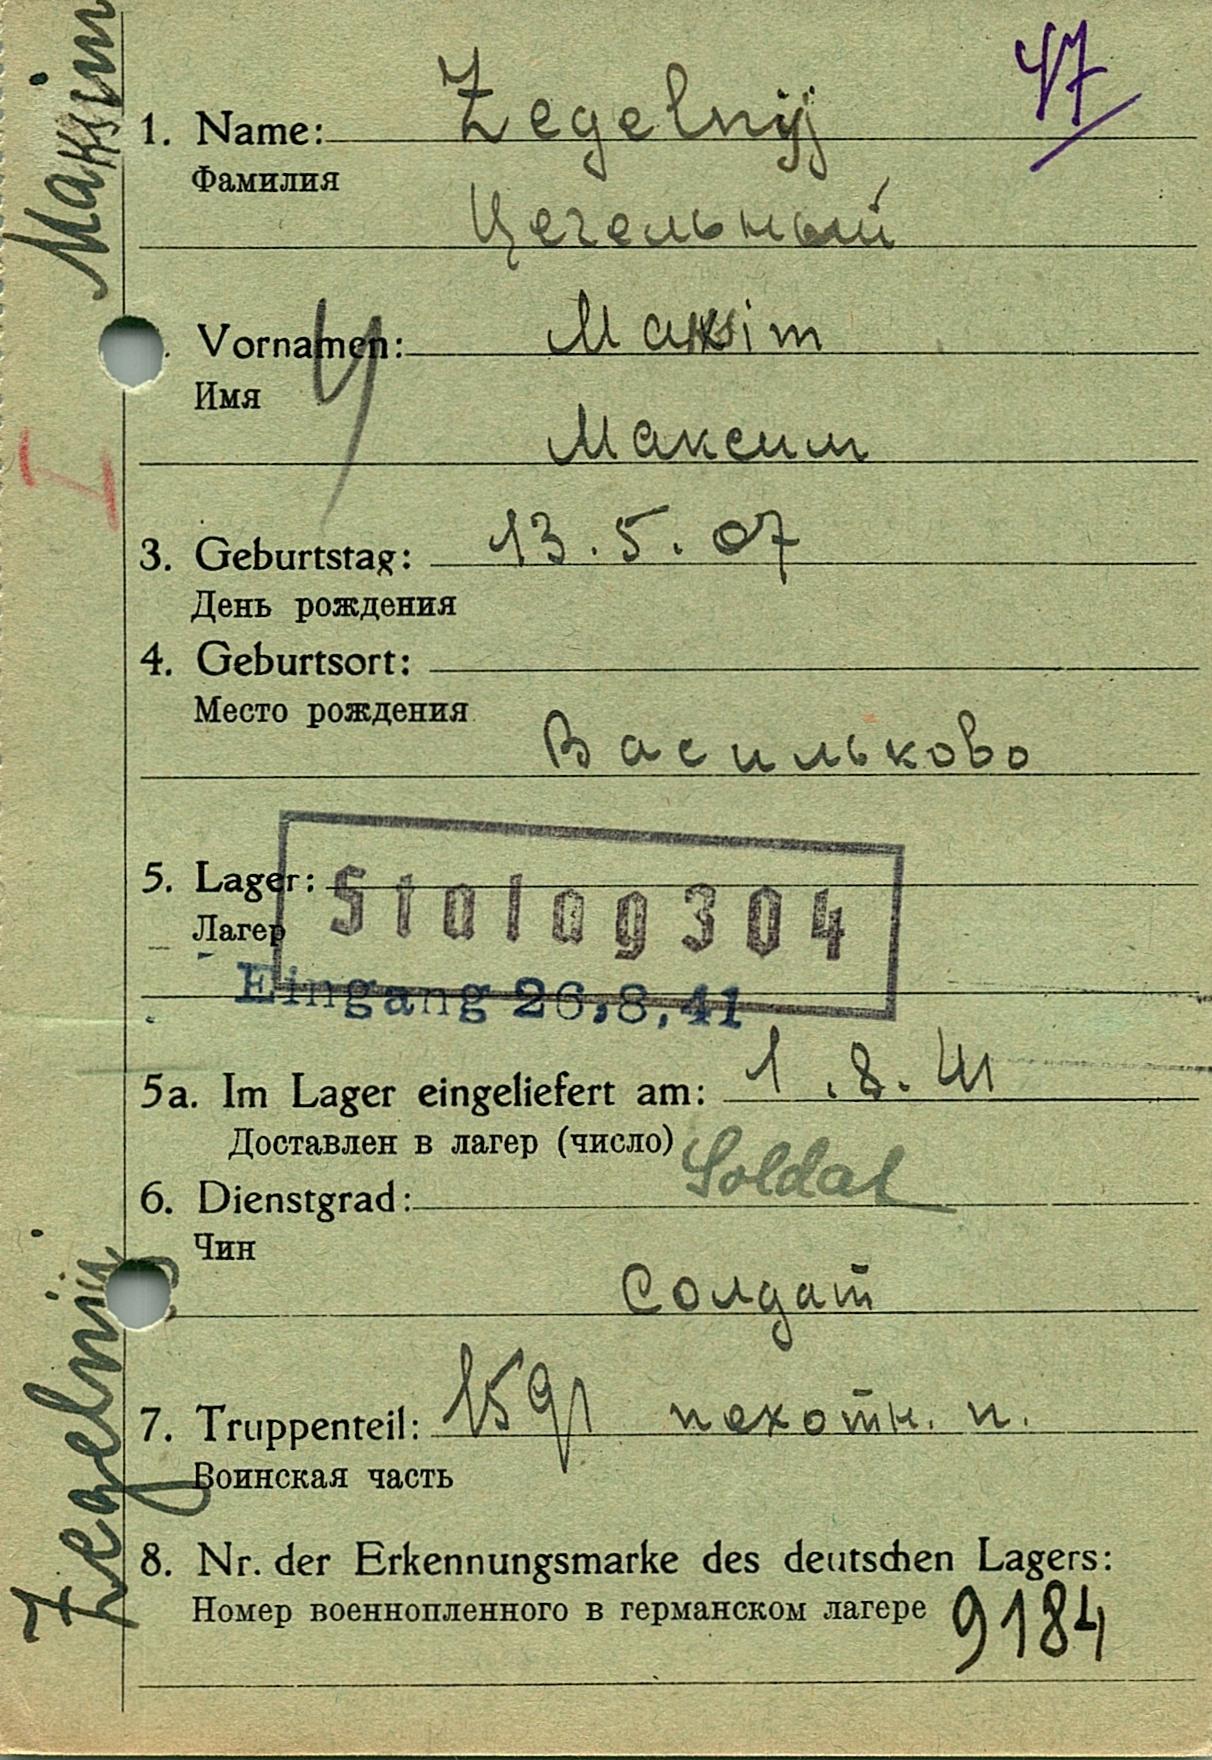 Maksim
47
1. Name: Zegelnyj
Фамилия
Цегельный
Vornamen: Maksim
Имя
Максим
I
3. Geburtstag: 13.5.07
День рождения
4. Geburtsort:
Место рождения
Васильково
5. Lager: Stalag 304
Лагер
Eingang 26.8.41
5a. Im Lager eingeliefert am: 1.8.41
Доставлен в лагер (число)
6. Dienstgrad: Soldat
Чин
Солдат
7. Truppenteil: пехотн. п.
Воинская часть
Zegelnij
8. Nr. der Erkennungsmarke des deutschen Lagers:
Номер военнопленного в германском лагере 9184